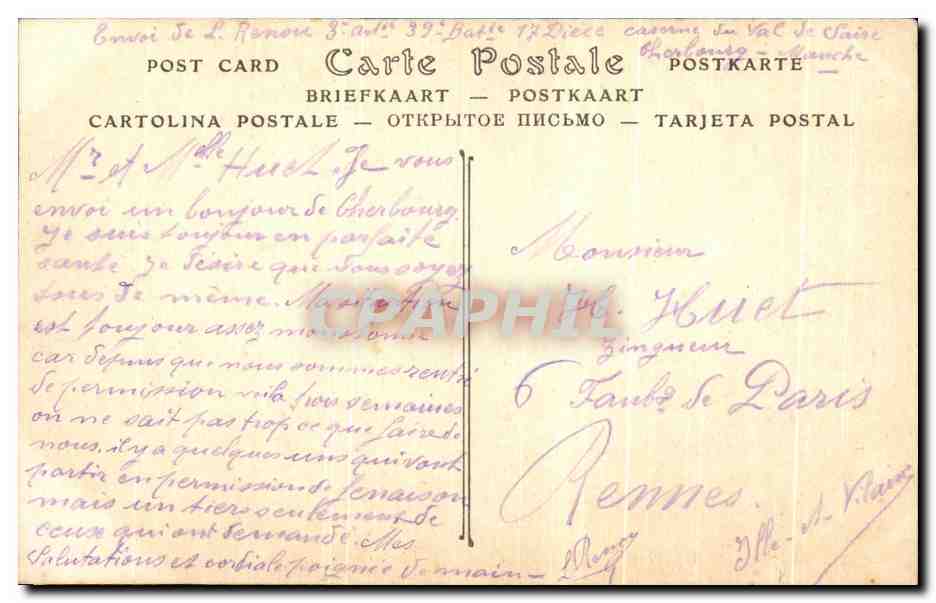 Envoi de L. Renou 3e artie 39e Battie 17 Pièce caserne du Val de Saire
Cherbourg - Manche
POST CARD Carte Postale POSTKARTE
BRIEFKAART — POSTKAART
CARTOLINA POSTALE — ОТКРЫТОЕ ПИСЬМО — TARJETA POSTAL
Mr et Melle Huet. Je vous
envoi un bonjour de Cherbourg.
Je suis toujour en parfaite
santé je désire que vous soyez
tous de même. Ma
est toujour assez monotone
car depuis que nous sommes rentré
de permission voilà trois semaines
on ne sait pas trop ce que faire de
nous. il y a quelques uns qui vont
partir en permission de fenaison
mais un tiers seulement de
ceux qui ont demandé. Mes
Salutations et cordiale poignée de main -
L Renou
Monsieur
Huet
Zingueur
6 Faubg de Paris
Rennes.
Ille-et-Vilaine
CPAPHIL